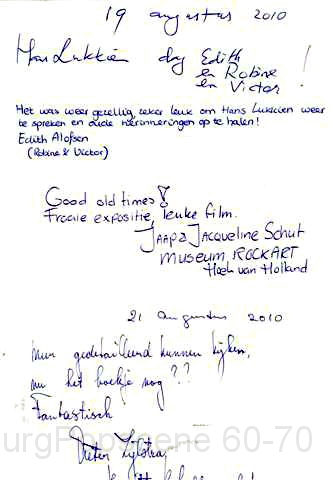 19 augustus 2010
Hans Lukkien dag Edith
en Robine
en Victor !
Het was weer gezellig, zeker leuk om Hans Lukkien weer
te spreken en oude herinneringen op te halen!
Edith Alofsen
(Robine & Victor)
Good old times!
Fraaie expositie, leuke film.
Jaap & Jacqueline Schut
MUSEUM ROCKART
Hoek van Holland
21 augustus 2010
gedetailleerd kunnen kijken,
nu het boekje nog??
Fantastisch
Pieter Zijlstra
urgPopscene 60-70